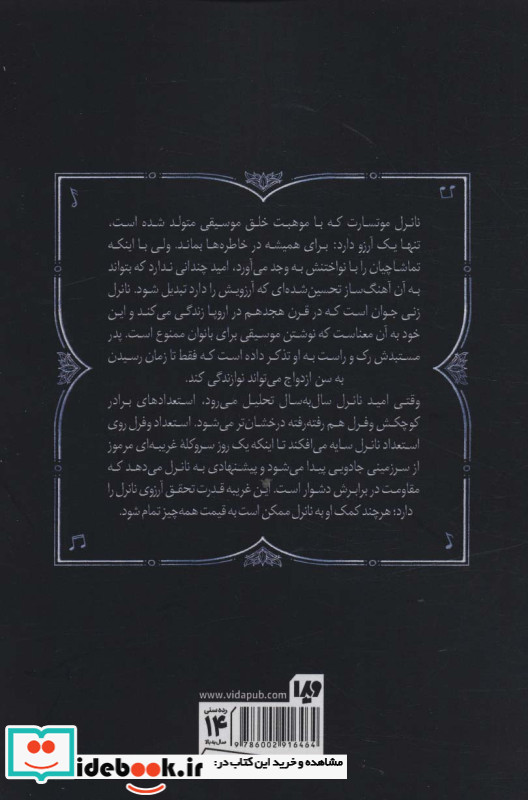 نانرل موتسارت که با موهبت خلق موسیقی متولد شده است،
تنها یک آرزو دارد: برای همیشه در خاطره‌ها بماند. ولی با اینکه
تماشاچیان را با نواختنش به وجد می‌آورد، امید چندانی ندارد که بتواند
به آن آهنگ‌ساز تحسین‌شده‌ای که آرزویش را دارد تبدیل شود. نانرل
زنی جوان است که در قرن هجدهم در اروپا زندگی می‌کند و این
خود به آن معناست که نوشتن موسیقی برای بانوان ممنوع است. پدر
مستبدش رک و راست به او تذکر داده است که فقط تا زمان رسیدن
به سن ازدواج می‌تواند نوازندگی کند.
وقتی امید نانرل سال‌به‌سال تحلیل می‌رود، استعدادهای برادر
کوچکش وفرل هم رفته‌رفته درخشان‌تر می‌شود. استعداد وفرل روی
استعداد نانرل سایه می‌افکند تا اینکه یک روز سروکلهٔ غریبه‌ای مرموز
از سرزمینی جادویی پیدا می‌شود و پیشنهادی به نانرل می‌دهد که
مقاومت در برابرش دشوار است. این غریبه قدرت تحقق آرزوی نانرل را
دارد؛ هرچند کمک او به نانرل ممکن است به قیمت همه‌چیز تمام شود.
www.vidapub.com
ویدا
رده‌سنی
۱۴
سال به بالا
9 786002 916464
مشاهده و خرید این کتاب در:
idebook.ir